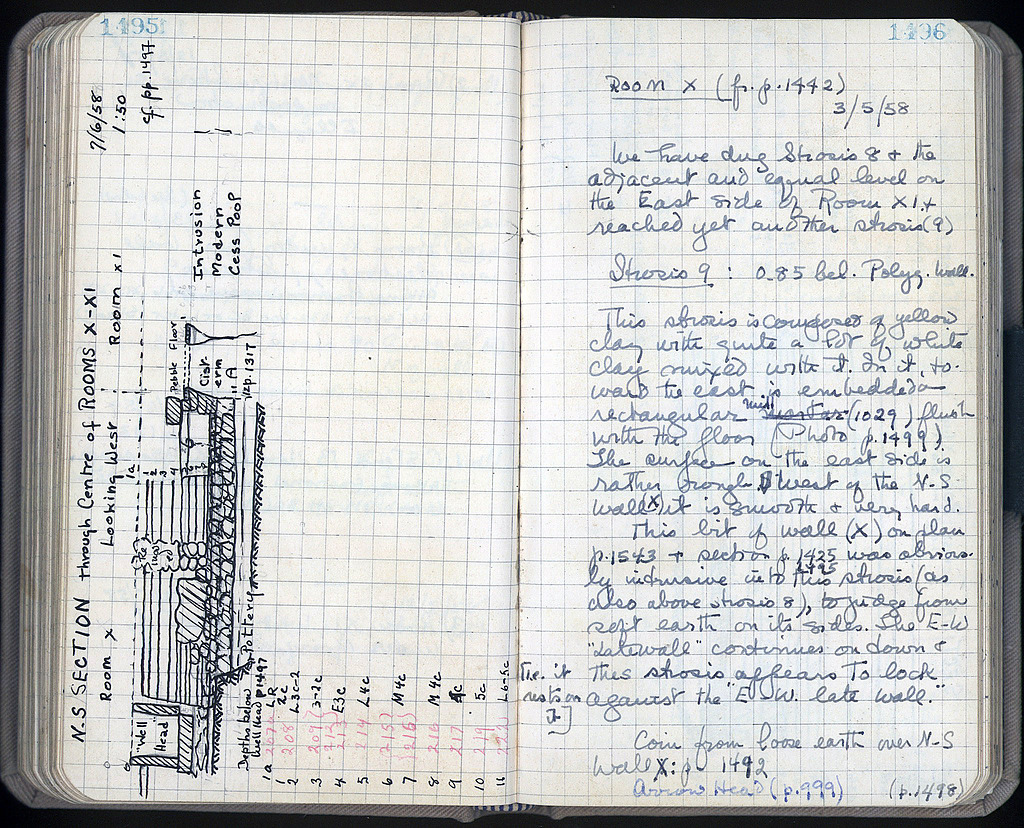 1495
7/6/58
1:50
cf. pp. 1497
N-S SECTION through Centre of ROOMS X-XI
Looking West
Room X
Room XI
"Well
Head"
1a
1
2
3
4
Pebble Floor
Cist-
ern
A
p. 1317
Intrusion
Modern
Cess Pool
Pottery
p 1497
Depths below
Well Head
1a 207a L R
2 208 L3c-2
3 209 3-2c
4 E3c
5 214 L4c
6 215 M4c
7 216
8 216 M4c
9 217 4c
10 219 5c
11 L6-5c
1496
Room X (fr. p. 1442)
3/5/58
We have dug Strosis 8 + the
adjacent and equal level on
the East side of Room XI +
reached yet another strosis (9)
Strosis 9 : 0.85 bel. Polyg. Wall.
This strosis is composed of yellow
clay with quite a lot of white
clay mixed with it. In it, to-
ward the east is embedded a
rectangular mill mortar (1029) flush
with the floor (Photo p. 1499)
The surface on the east side is
rather rough. West of the N-S
wall (X) it is smooth + very hard.
This bit of wall (X) on plan
p. 1543 + section p. 1425 was obvious-
1495
ly intrusive into this strosis (as
also above strosis 8), to judge from
soft earth on its sides. The E-W
"Late wall" continues on down +
this strosis appears to lock
against the "E-W. late wall."
[i.e. it
rests on
it]
Coin from loose earth over N-S
Wall X: p 1492
Arrow Head (p. 999) (p. 1498)